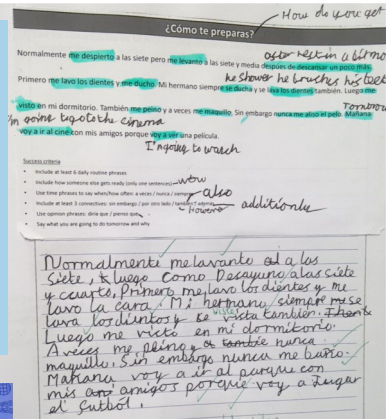 How do you get
¿Cómo te preparas?
after resting a bit more
Normalmente me despierto a las siete pero me levanto a las siete y media después de descansar un poco más.
he shower he brushes his teeth
Primero me lavo los dientes y me ducho. Mi hermano siempre se ducha y se lava los dientes también. Luego me
visto en mi dormitorio. También me peino y a veces me maquillo. Sin embargo nunca me aliso el pelo. Mañana
Tomorrow
I'm going to go to the cinema
voy a ir al cine con mis amigos porque voy a ver una película.
I'm going to watch
Success criteria
Include at least 6 daily routine phrases
Include how someone else gets ready (only one sentences)
Use time phrases to say when/how often: a veces / nunca / siempre
also
Include at least 3 connectives: sin embargo / por otro lado / también / además
However
additionally
Use opinion phrases: diría que / pienso que
Say what you are going to do tomorrow and why
Normalmente me lavanto a las
siete, luego como Desayuno a las siete
y cuarto, Primero me lavo los dientes y me
lavo la cara. Mi hermano siempre se
lava los dientos y se vista también.
viste
Luego me visto en mi dormitorio.
A veces me peino y nunca
maquillo. Sin embargo nunca me baño.
Mañana voy a ir al parque con
mis amigos porque voy a Jugar
el fútbol.